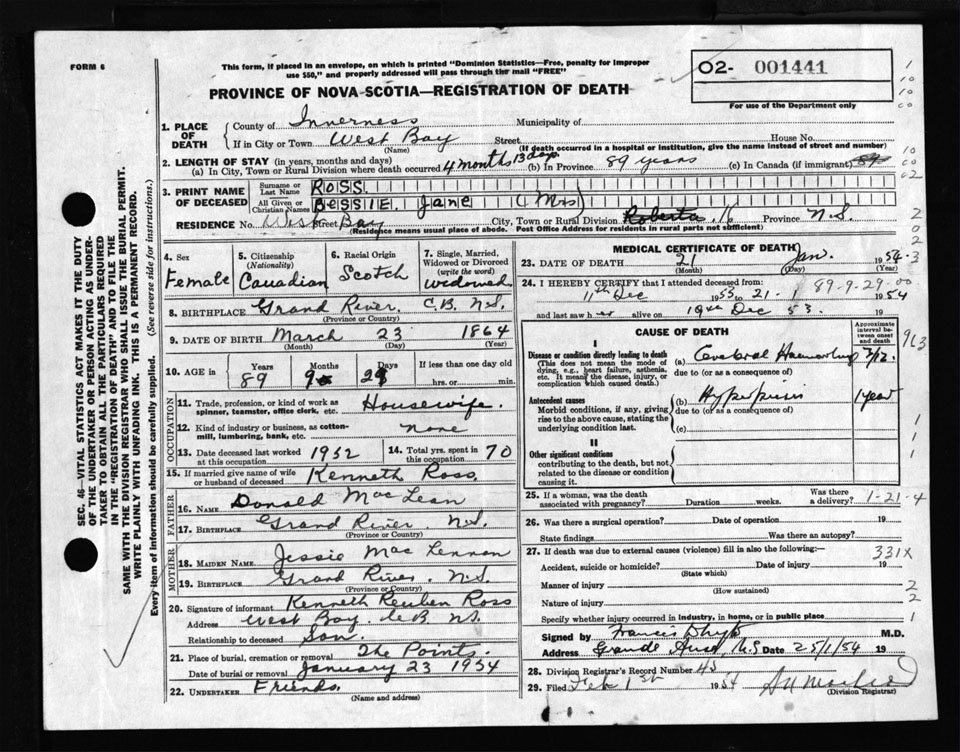 FORM 6
This form, if placed in an envelope, on which is printed "Dominion Statistics—Free, penalty for improper
use $50," and properly addressed will pass through the mail "FREE"
PROVINCE OF NOVA SCOTIA—REGISTRATION OF DEATH
O2- 001441
For use of the Department only
1. PLACE OF DEATH
County of Inverness Municipality of
If in City or Town West Bay Street House No.
(Name) (If death occurred in a hospital or institution, give the name instead of street and number)
2. LENGTH OF STAY (in years, months and days)
(a) In City, Town or Rural Division where death occurred 4 months 13 days (b) In Province 89 years (c) In Canada (if immigrant)
3. PRINT NAME OF DECEASED
Surname or Last Name ROSS
All Given or Christian Names BESSIE Jane (Mrs)
RESIDENCE No. West Street Bay City, Town or Rural Division 16 Province N.S.
(Residence means usual place of abode. Post Office Address for residents in rural parts not sufficient)
4. Sex
Female
5. Citizenship
(Nationality)
Canadian
6. Racial Origin
Scotch
7. Single, Married, Widowed or Divorced
(write the word)
widowed
8. BIRTHPLACE Grand River, C.B. N.S.
(Province or Country)
9. DATE OF BIRTH March 23 1864
(Month) (Day) (Year)
10. AGE in Years Months Days If less than one day
89 9 29 hrs. or min.
OCCUPATION
11. Trade, profession, or kind of work as
spinner, teamster, office clerk, etc. Housewife.
12. Kind of industry or business, as cotton-
mill, lumbering, bank, etc. none
13. Date deceased last worked
at this occupation 1952
14. Total yrs. spent in
this occupation 70
15. If married give name of wife
or husband of deceased Kenneth Ross
FATHER
16. Name Donald MacLean
17. Birthplace Grand River, N.S.
(Province or Country)
MOTHER
18. Maiden Name Jessie MacLennan
19. Birthplace Grand River, N.S.
(Province or Country)
20. Signature of informant Kenneth Reuben Ross
Address West Bay, C.B. N.S.
Relationship to deceased Son.
21. Place of burial, cremation or removal The Points.
Date of burial or removal January 23 1954
22. Undertaker Friends.
(Name and address)
MEDICAL CERTIFICATE OF DEATH
23. DATE OF DEATH 21 Jan. 1954
(Month) (Day) (Year)
24. I HEREBY CERTIFY that I attended deceased from: 89-9-29-00
11th Dec 1953 to 21-1 1954
and last saw her alive on Dec 53.
CAUSE OF DEATH
Approximate interval between onset and death
963
I
Disease or condition directly leading to death
This does not mean the mode of dying, e.g., heart failure, asthenia, etc. It means the disease, injury, or complication which caused death.
(a) Cerebral
due to (or as a consequence of)
Antecedent causes
Morbid conditions, if any, giving rise to the above cause, stating the underlying condition last.
(b) 1 year
due to (or as a consequence of)
(c)
II
Other significant conditions
contributing to the death, but not related to the disease or condition causing it.
25. If a woman, was the death associated with pregnancy? Duration weeks. Was there a delivery? 1-21-4
26. Was there a surgical operation? Date of operation 19
State findings Was there an autopsy?
27. If death was due to external causes (violence) fill in also the following:— 331X
Accident, suicide or homicide? Date of injury 19
(State which)
Manner of injury
(How sustained)
Nature of injury
Specify whether injury occurred in industry, in home, or in public place
Signed by Francis M.D.
Address N.S Date 25/1/54 19
28. Division Registrar's Record Number 45
29. Filed Feb 1st 1954
(Division Registrar)
SEC. 46—VITAL STATISTICS ACT MAKES IT THE DUTY
OF THE UNDERTAKER OR PERSON ACTING AS UNDER-
TAKER TO OBTAIN ALL THE PARTICULARS REQUIRED
IN THE "REGISTRATION OF DEATH" AND TO FILE THE
SAME WITH THE DIVISION REGISTRAR WHO SHALL ISSUE THE BURIAL PERMIT.
WRITE PLAINLY WITH UNFADING INK. THIS IS A PERMANENT RECORD.
Every item of information should be carefully supplied. (See reverse side for instructions.)